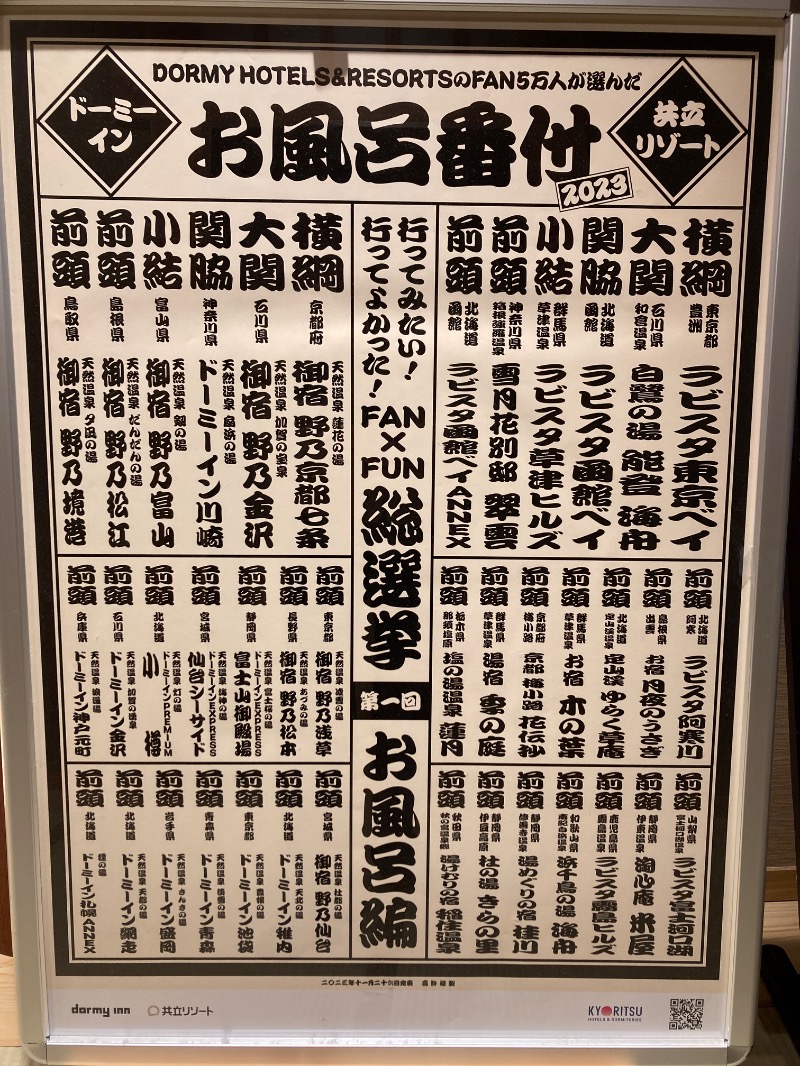 DORMY HOTELS&RESORTSのFAN5万人が選んだ
お風呂番付
2023
ドーミー
イン
共立
リゾート
行ってみたい!
行ってよかった!
FAN×FUN
総選挙
第一回
お風呂編
横綱
東京都
豊洲
ラビスタ東京ベイ
大関
石川県
和倉温泉
白鷺の湯 能登 海舟
関脇
北海道
函館
ラビスタ函館ベイ
小結
群馬県
草津温泉
ラビスタ草津ヒルズ
前頭
神奈川県
箱根強羅温泉
雪月花別邸 翠雲
前頭
北海道
函館
ラビスタ函館ベイANNEX
前頭
北海道
阿寒
ラビスタ阿寒川
前頭
島根県
出雲
お宿 月夜のうさぎ
前頭
北海道
定山渓温泉
定山渓 ゆらく草庵
前頭
群馬県
草津温泉
お宿 木の葉
前頭
京都府
梅小路
京都 梅小路 花伝抄
前頭
群馬県
草津温泉
湯宿 季の庭
前頭
栃木県
那須塩原
塩の湯温泉 蓮月
前頭
山梨県
富士河口湖温泉
ラビスタ富士河口湖
前頭
静岡県
伊東温泉
淘心庵 米屋
前頭
鹿児島県
霧島温泉
ラビスタ霧島ヒルズ
前頭
和歌山県
南紀白浜温泉
浜千鳥の湯 海舟
前頭
静岡県
修善寺温泉
湯めぐりの宿 桂川
前頭
静岡県
伊豆高原
杜の湯 きらの里
前頭
秋田県
秋の宮温泉郷
湯けむりの宿 稲住温泉
横綱
京都府
天然温泉 蓮花の湯
御宿 野乃京都七条
大関
石川県
天然温泉 加賀の宝泉
御宿 野乃金沢
関脇
神奈川県
天然温泉 扇浜の湯
ドーミーイン川崎
小結
富山県
天然温泉 剱の湯
御宿 野乃富山
前頭
島根県
天然温泉 だんだんの湯
御宿 野乃松江
前頭
鳥取県
天然温泉 夕凪の湯
御宿 野乃境港
前頭
東京都
天然温泉 凌雲の湯
御宿 野乃浅草
前頭
長野県
天然温泉 あづみの湯
御宿 野乃松本
前頭
静岡県
天然温泉 富士桜の湯
ドーミーインEXPRESS
富士山御殿場
前頭
宮城県
天然温泉 海神の湯
ドーミーインEXPRESS
仙台シーサイド
前頭
北海道
天然温泉 灯の湯
ドーミーインPREMIUM
小樽
前頭
石川県
天然温泉 加賀の湧泉
ドーミーイン金沢
前頭
兵庫県
天然温泉 浪漫湯
ドーミーイン神戸元町
前頭
宮城県
天然温泉 杜都の湯
御宿 野乃仙台
前頭
北海道
天然温泉 天北の湯
ドーミーイン稚内
前頭
東京都
天然温泉 豊穣の湯
ドーミーイン池袋
前頭
青森県
天然温泉
ドーミーイン青森
前頭
岩手県
天然温泉 さんさの湯
ドーミーイン盛岡
前頭
北海道
天然温泉 天都の湯
ドーミーイン網走
前頭
北海道
ドーミーイン札幌ANNEX
二〇二三年十一月二十六日発表
dormy inn
共立リゾート
KYORITSU
HOTELS & DORMITORIES